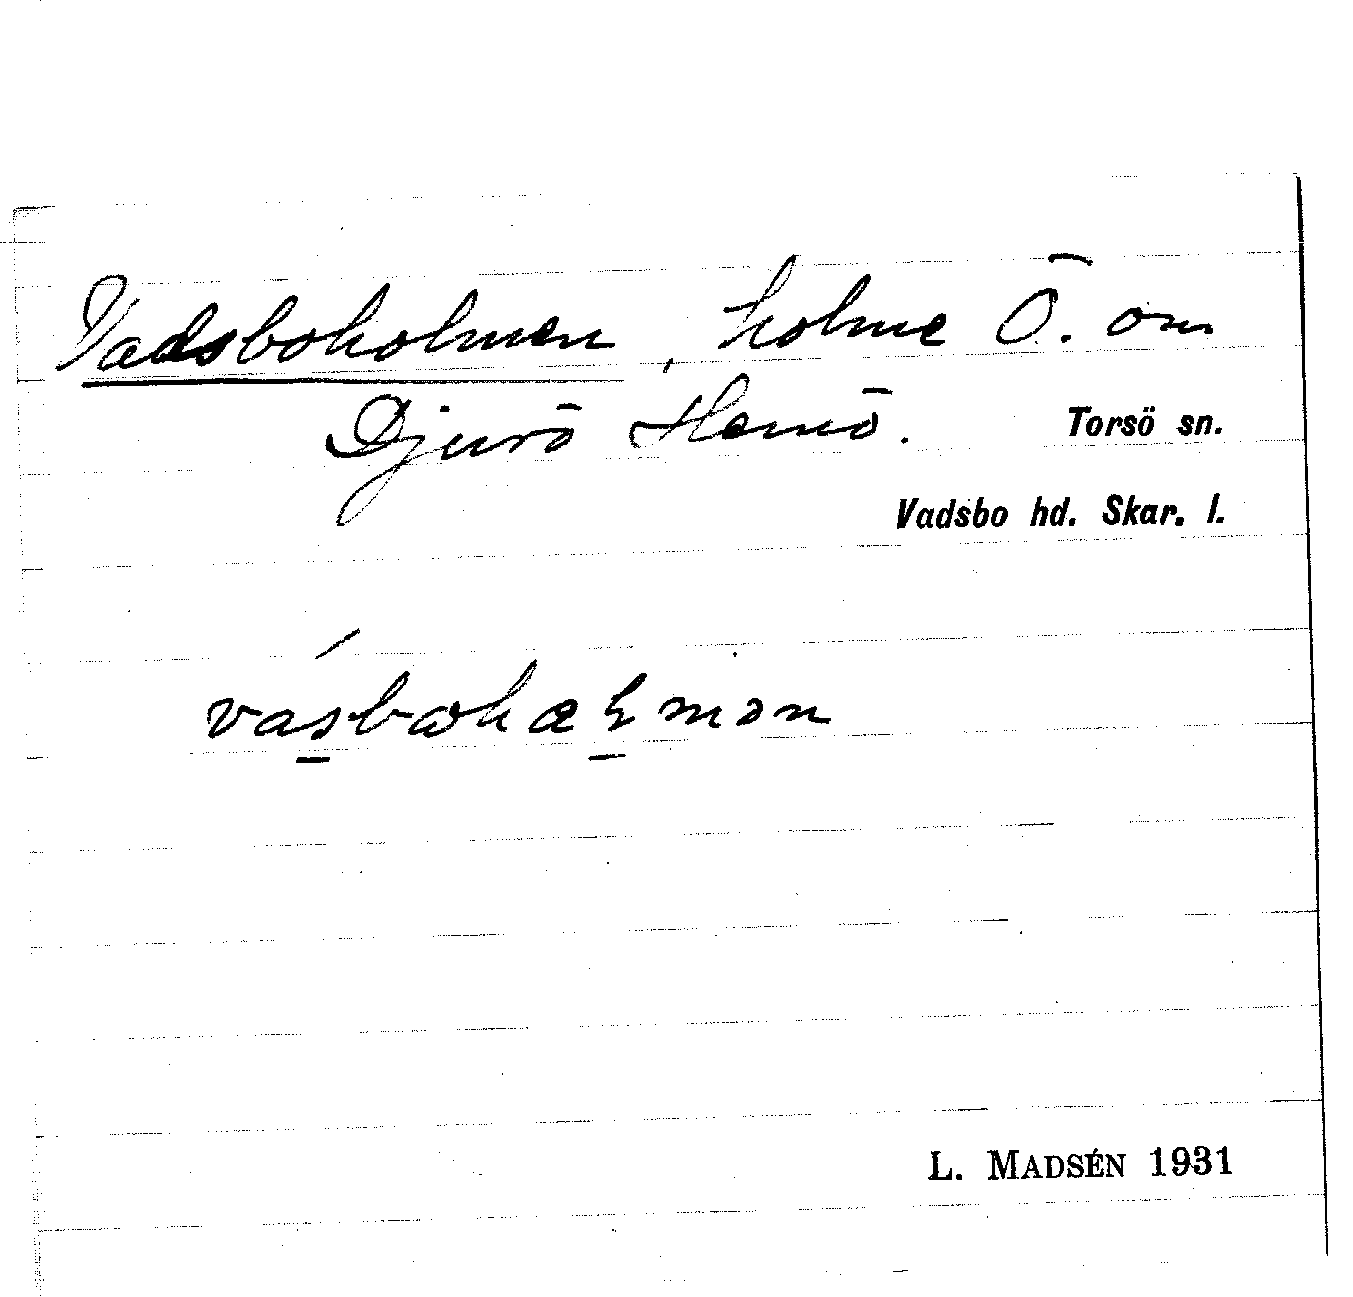 Vadsboholmen, holme Ö. om
Djurö Hemö. Torsö sn.
Vadsbo hd. Skar. l.
L. MADSÉN 1931